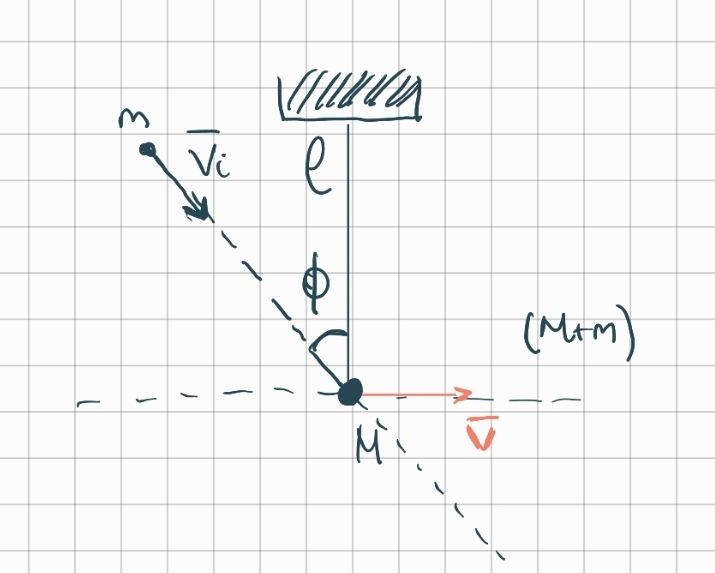 m
v̅i
l
ϕ
(M+m)
M
v̅